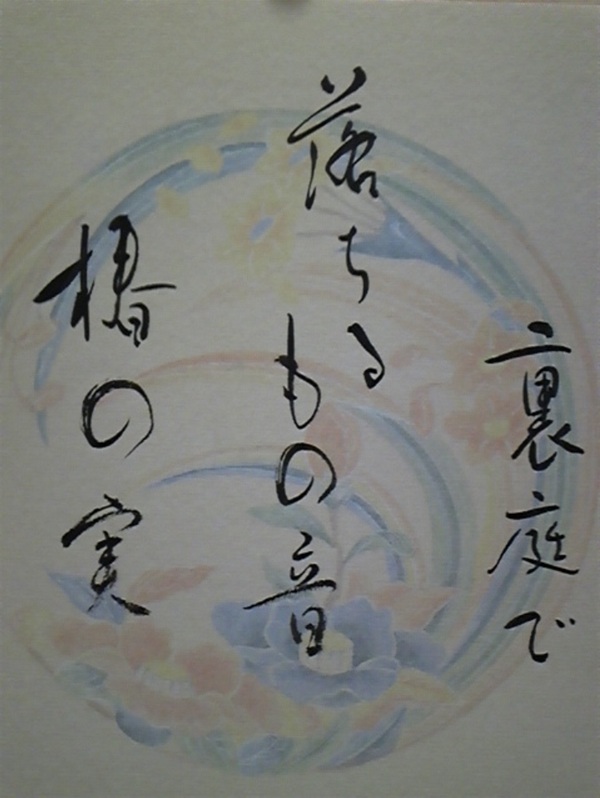 裏庭で
落ちるもの音
椿の実